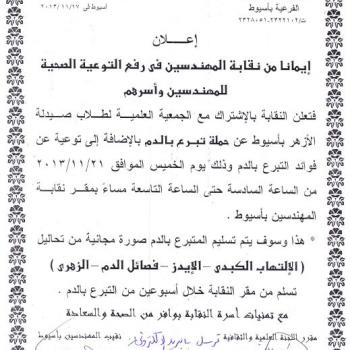 الفرعية بأسيوط
أسيوط فى ٢٠١٣/١١/١٧
ت/٢٣٢٢١٠٢-٢٣٢٨٠٥١
إعـــلان
إيمانا من نقابة المهندسين فى رفع التوعية الصحية
للمهندسين وأسرهم
فتعلن النقابة بالإشتراك مع الجمعية العلمية لطلاب صيدلة
الأزهر بأسيوط عن حملة تبرع بالدم بالإضافة إلى توعية عن
فوائد التبرع بالدم وذلك يوم الخميس الموافق ٢٠١٣/١١/٢١
من الساعة السادسة حتى الساعة التاسعة مساءً بمقر نقابة
المهندسين بأسيوط .
* هذا وسوف يتم تسليم المتبرع بالدم صورة مجانية من تحاليل
( الإلتهاب الكبدى – الإيدز – فصائل الدم – الزهرى )
تسلم من مقر النقابة خلال أسبوعين من التبرع بالدم .
مع تمنيات أسرة النقابة بوافر من الصحة والسعادة
مقرر اللجنة العلمية والثقافية
نقيب المهندسين بأسيوط